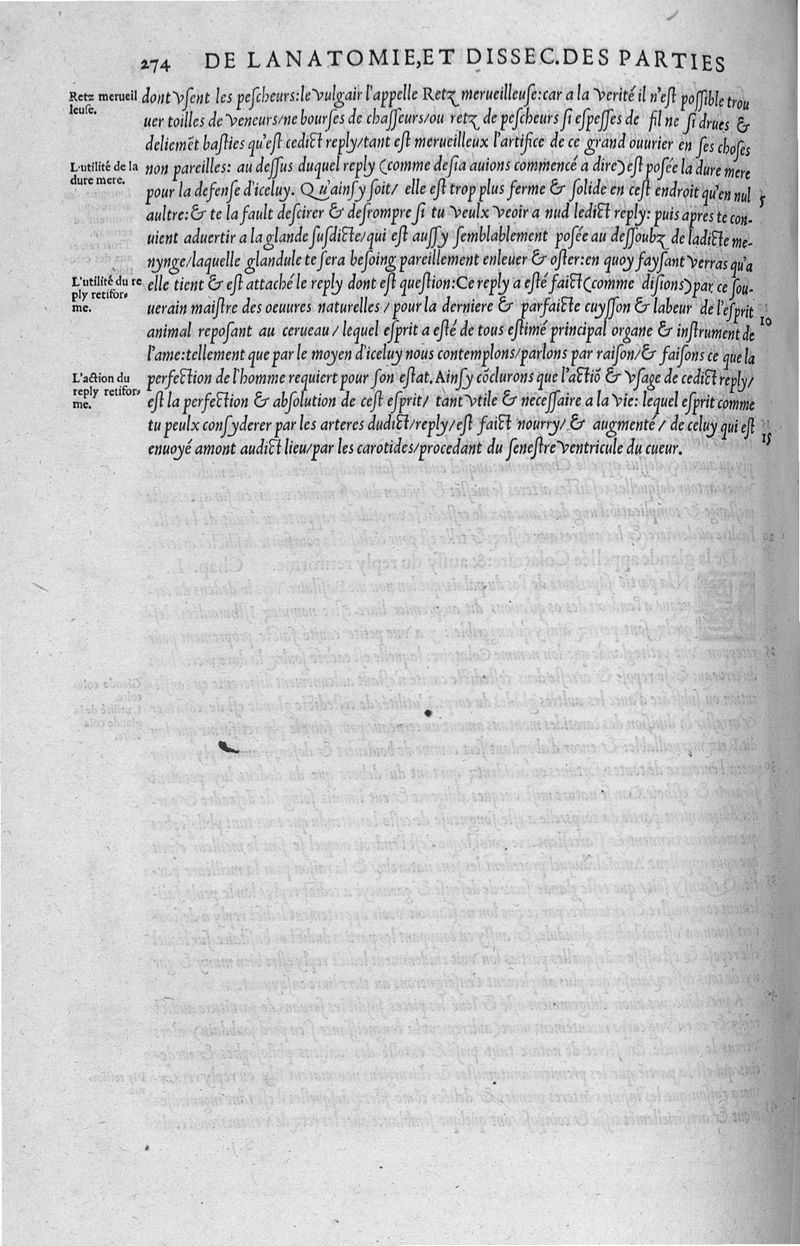 274 DE LANATOMIE, ET DISSEC. DES PARTIES
Retz merueil
leuse.
dont vsent les pescheurs: le vulgair l'appelle Retz merueilleuse: car a la verité il n'est possible trou
uer toilles de veneurs/ne bourses de chasseurs/ou retz de pescheurs si espesses de fil ne si drues &
deliemēt basties qu'est cedict reply/tant est merueilleux l'artifice de ce grand ouurier en ses choses
L'utilité de la
dure mere.
non pareilles: au dessus duquel reply (comme desia auions commencé a dire) est posée la dure mere
pour la defense d'iceluy. Qu'ainsy soit/ elle est trop plus ferme & solide en cest endroit qu'en nul
5
aultre: & te la fault descirer & desrompre si tu veulx veoir a nud ledict reply: puis apres te con-
uient aduertir a la glande susdicte/qui est aussy semblablement posée au dessoubz de ladicte me-
nynge/laquelle glandule te sera besoing pareillement enleuer & oster: en quoy faysant verras qu'a
L'utilité du re
ply retifor-
me.
elle tient & est attaché le reply dont est question: Ce reply a esté faict (comme disions) par ce sou-
uerain maistre des oeuures naturelles / pour la derniere & parfaicte cuysson & labeur de l'esprit
10
animal reposant au cerueau / lequel esprit a esté de tous estimé principal organe & instrument de
l'ame: tellement que par le moyen d'iceluy nous contemplons/parlons par raison/& faisons ce que la
L'action du
reply retifor-
me.
perfection de l'homme requiert pour son estat. Ainsy cōclurons que l'actiō & vsage de cedict reply/
est la perfection & absolution de cest esprit/ tant vtile & necessaire a la vie: lequel esprit comme
tu peulx consyderer par les arteres dudict/reply/est faict nourry/& augmenté / de celuy qui est
15
enuoyé amont audict lieu/par les carotides/procedant du senestre ventricule du cueur.